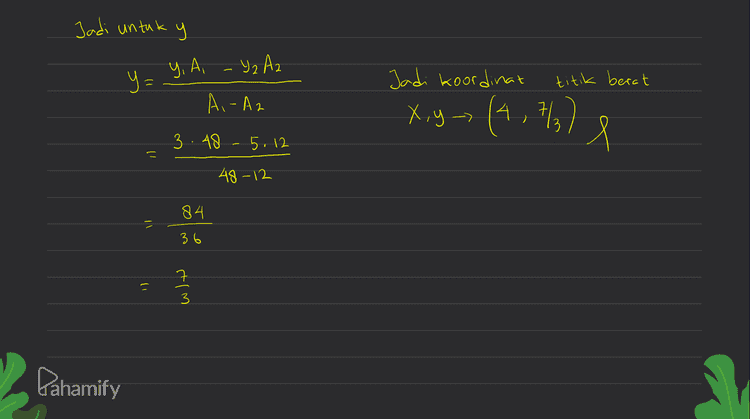 Jadi untuk y
y = y₁ A₁ - y₂ A₂
A₁ - A₂
= 3 . 48 - 5 . 12
48 - 12
= 84
36
= 7
3
Jadi koordinat titik berat
x, y → (4, 7/3)
Pahamify